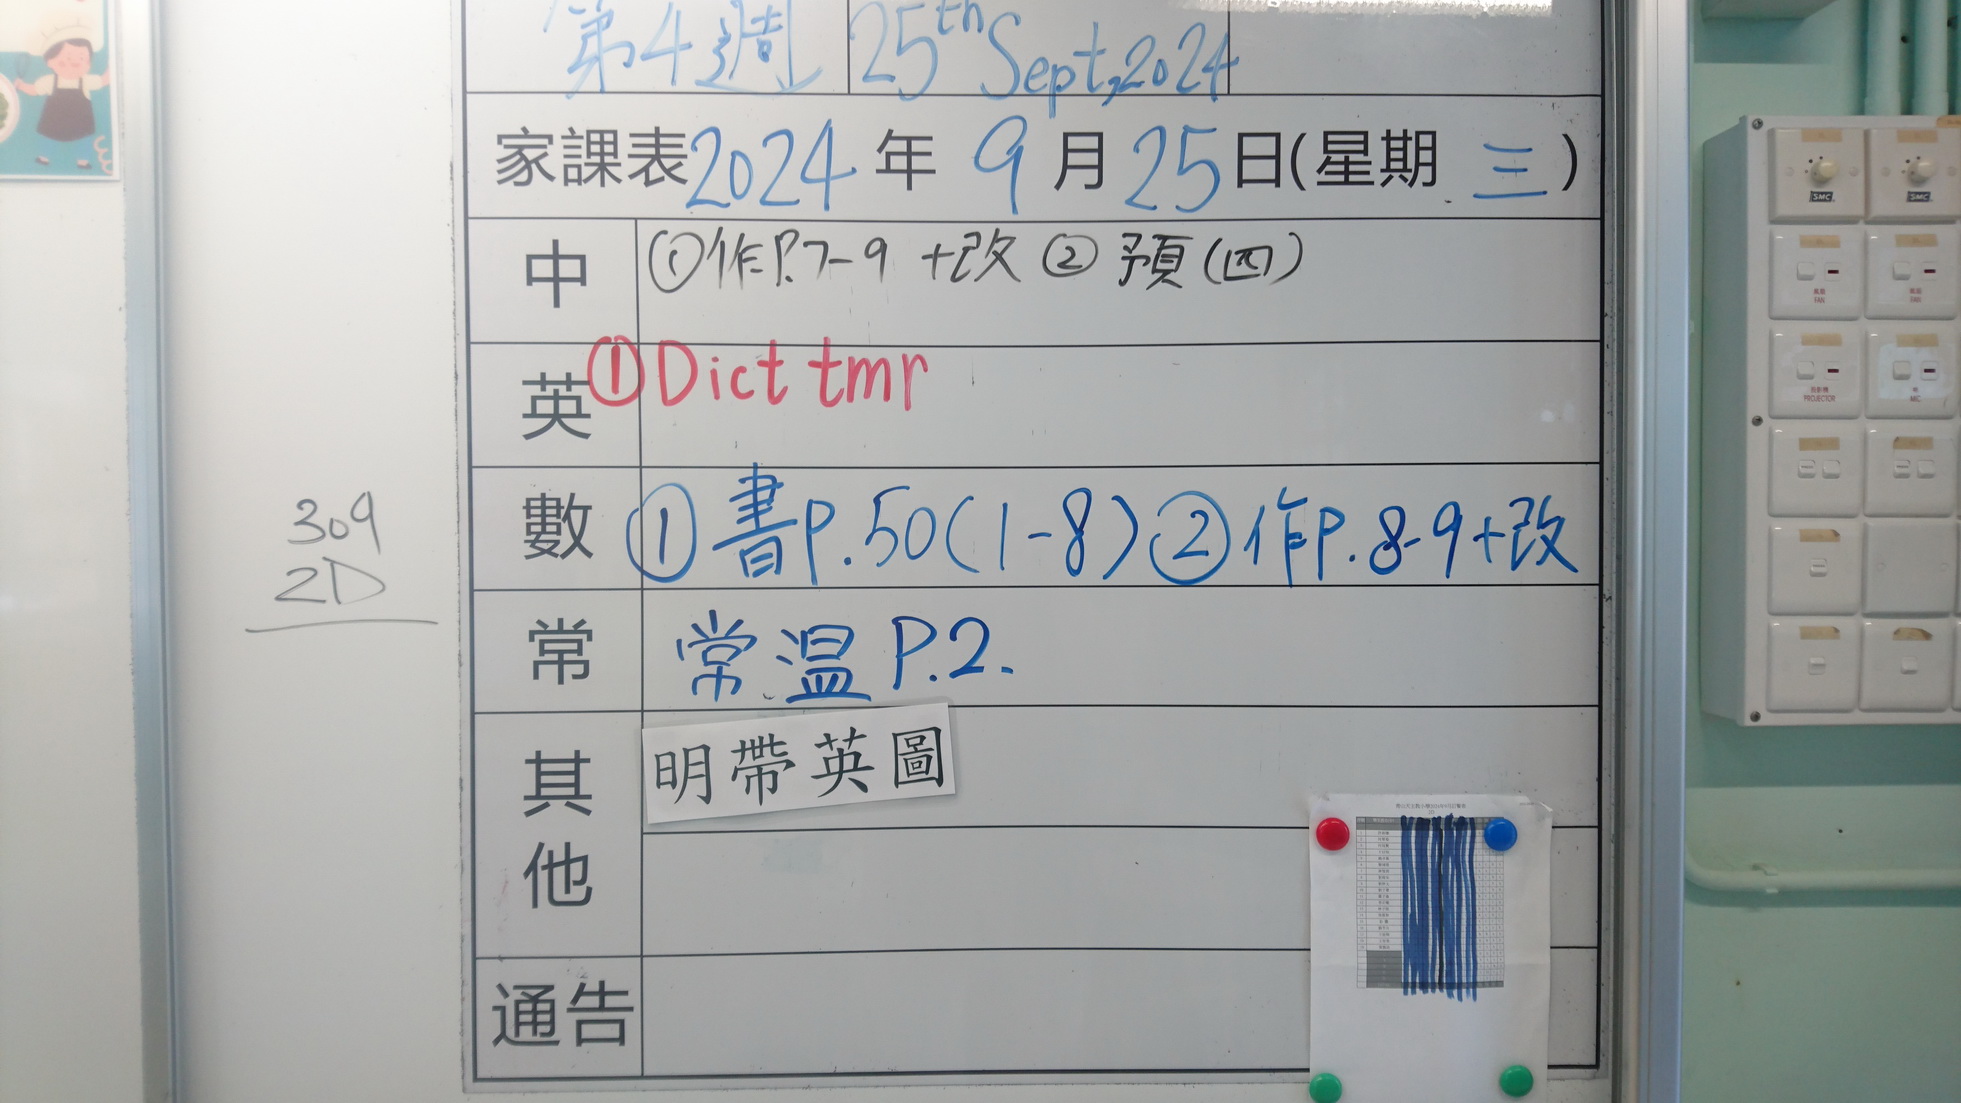 第4週 25th Sept,2024
家課表2024年9月25日(星期三)
中 ①作P.7-9 +改 ② 預(四)
英 ①Dict tmr
數 ①書P.50(1-8)②作P.8-9+改
309
2D
常 常溫P.2.
其他 明帶英圖
通告
SMC
SMC
FAN
FAN
PROJECTOR
MIC